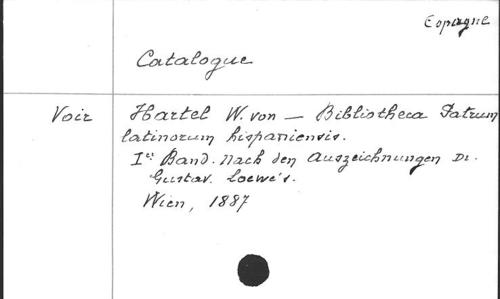 Espagne
Catalogue
Voir Hartel W. von — Bibliotheca Patrum
latinorum hispaniensis.
Ier Band. Nach den Auszeichnungen Dr.
Gustav. Loewe's.
Wien, 1887